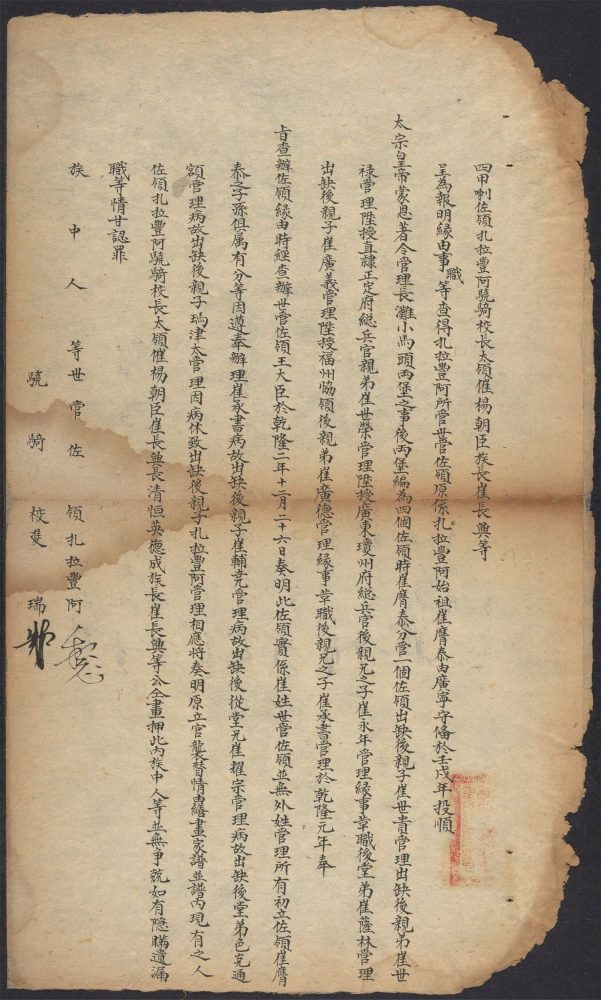 四甲喇佐領扎拉豐阿驍騎校長太領催楊朝臣族長崔長興等
呈為報明緣由事職等查得扎拉豐阿所管世管佐領原係扎拉豐阿始祖崔膺泰由廣寧守備於壬戌年投順
太宗皇帝蒙恩著令管理長灘小馬頭兩堡之事後兩堡編為四個佐領時崔膺泰分管一個佐領出缺後親子崔世貴管理出缺後親弟崔世
祿管理陞授直隸正定府總兵官親弟崔世榮管理陞授廣東瓊州府總兵官後親兄之子崔永年管理緣事革職後堂弟崔薩林管理
出缺後親子崔廣義管理陞授福州協領後親弟崔廣德管理緣事革職後親兄之子崔承書管理於乾隆元年奉
旨查辦佐領緣由時經查辦世管佐領王大臣於乾隆二年十二月二十六日奏明此佐領實係崔姓世管佐領並無外姓管理所有初立佐領崔膺
泰之子孫俱屬有分等因遵奉辦理崔承書病故出缺後親子崔輔堯管理病故出缺後從堂兄崔耀宗管理病故出缺後堂弟色克通
額管理病故出缺後親子瑪津太管理因病休致出缺後親子扎拉豐阿管理相應將奏明原立官襲替情由繕畫家譜並譜內現有之人
佐領扎拉豐阿驍騎校長太領催楊朝臣崔長興長清恒英德成族長崔長興等公仝畫押此內族中人等並無爭競如有隱瞞遺漏
職等情甘認罪
族中人等世管佐領扎拉豐阿
驍騎校雙瑞